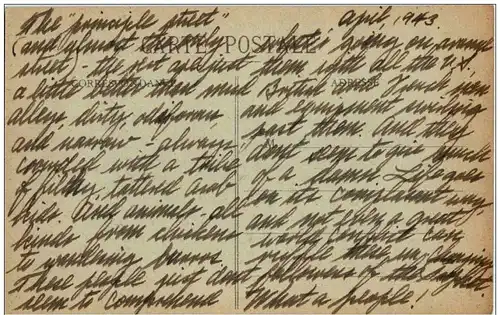 The "principle street"
(and almost the only
street - the rest are just
a little better than mud
alleys, dirty, odiferous,
and narrow - always
crowded with a tribe
of filthy, tattered arab
kids. And animals - all
kinds from chickens
to wandering burros
These people just dont
seem to comprehend
CARTE POSTALE
CORRESPONDANCE
ADRESSE
April, 1943.
what's going on around
them with all the U.S.
British and French men
and equipment swirling
past them. And they
dont seem to give much
of a damn. Life goes
on its complacent way
and not even a great
world conflict can
ruffle these
followers of the
What a people!